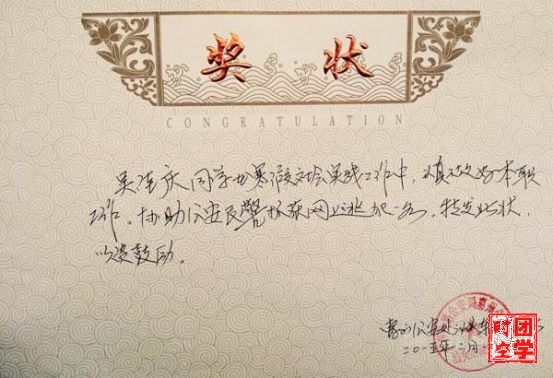 奖 状
CONGRATULATION
吴佳庆同学在寒假社会实践工作中,认真做好本职
工作。协助公安民警抓获网上逃犯一名,特发此状,
以资鼓励。
惠州公安处汕头东
二〇一五年二月
团学
时空